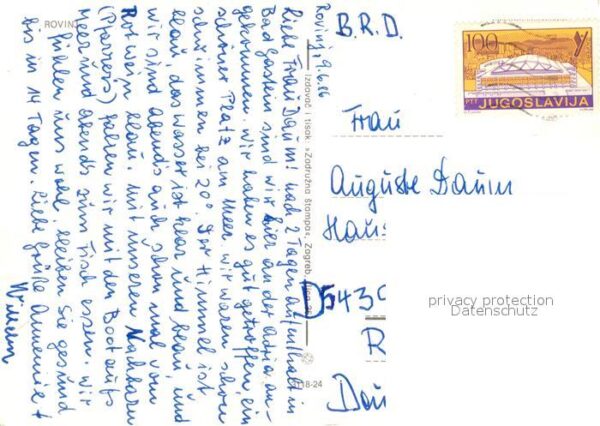 ROVINJ
Rovinj, 9.6.86
Liebe Frau Daum! Nach 2 Tagen Aufenthalt in
Bad Gastein sind wir hier an der Adria an-
gekommen. Wir haben es gut getroffen, ein
schöner Platz am Meer. Wir waren schon
schwimmen bei 20°. Der Himmel ist
blau, das Wasser ist klar und blau, und
wir sind abends auch schon mal vom
Rotwein blau. Mit unseren Nachbarn
(Pfarrers) fahren wir mit den Boot aufs
Meer und abends zum Fisch essen. Wir
fühlen uns wohl. Bleiben Sie gesund
bis in 14 Tagen. Liebe Grüße Annemie +
Willem
Izdavač i tisak »Zadružna štampa«, Zagreb,
3118-24
B.R.D.
100
PTT JUGOSLAVIJA
Frau
Auguste Daum
Haus
D 5439
R
Dau
privacy protection
Datenschutz